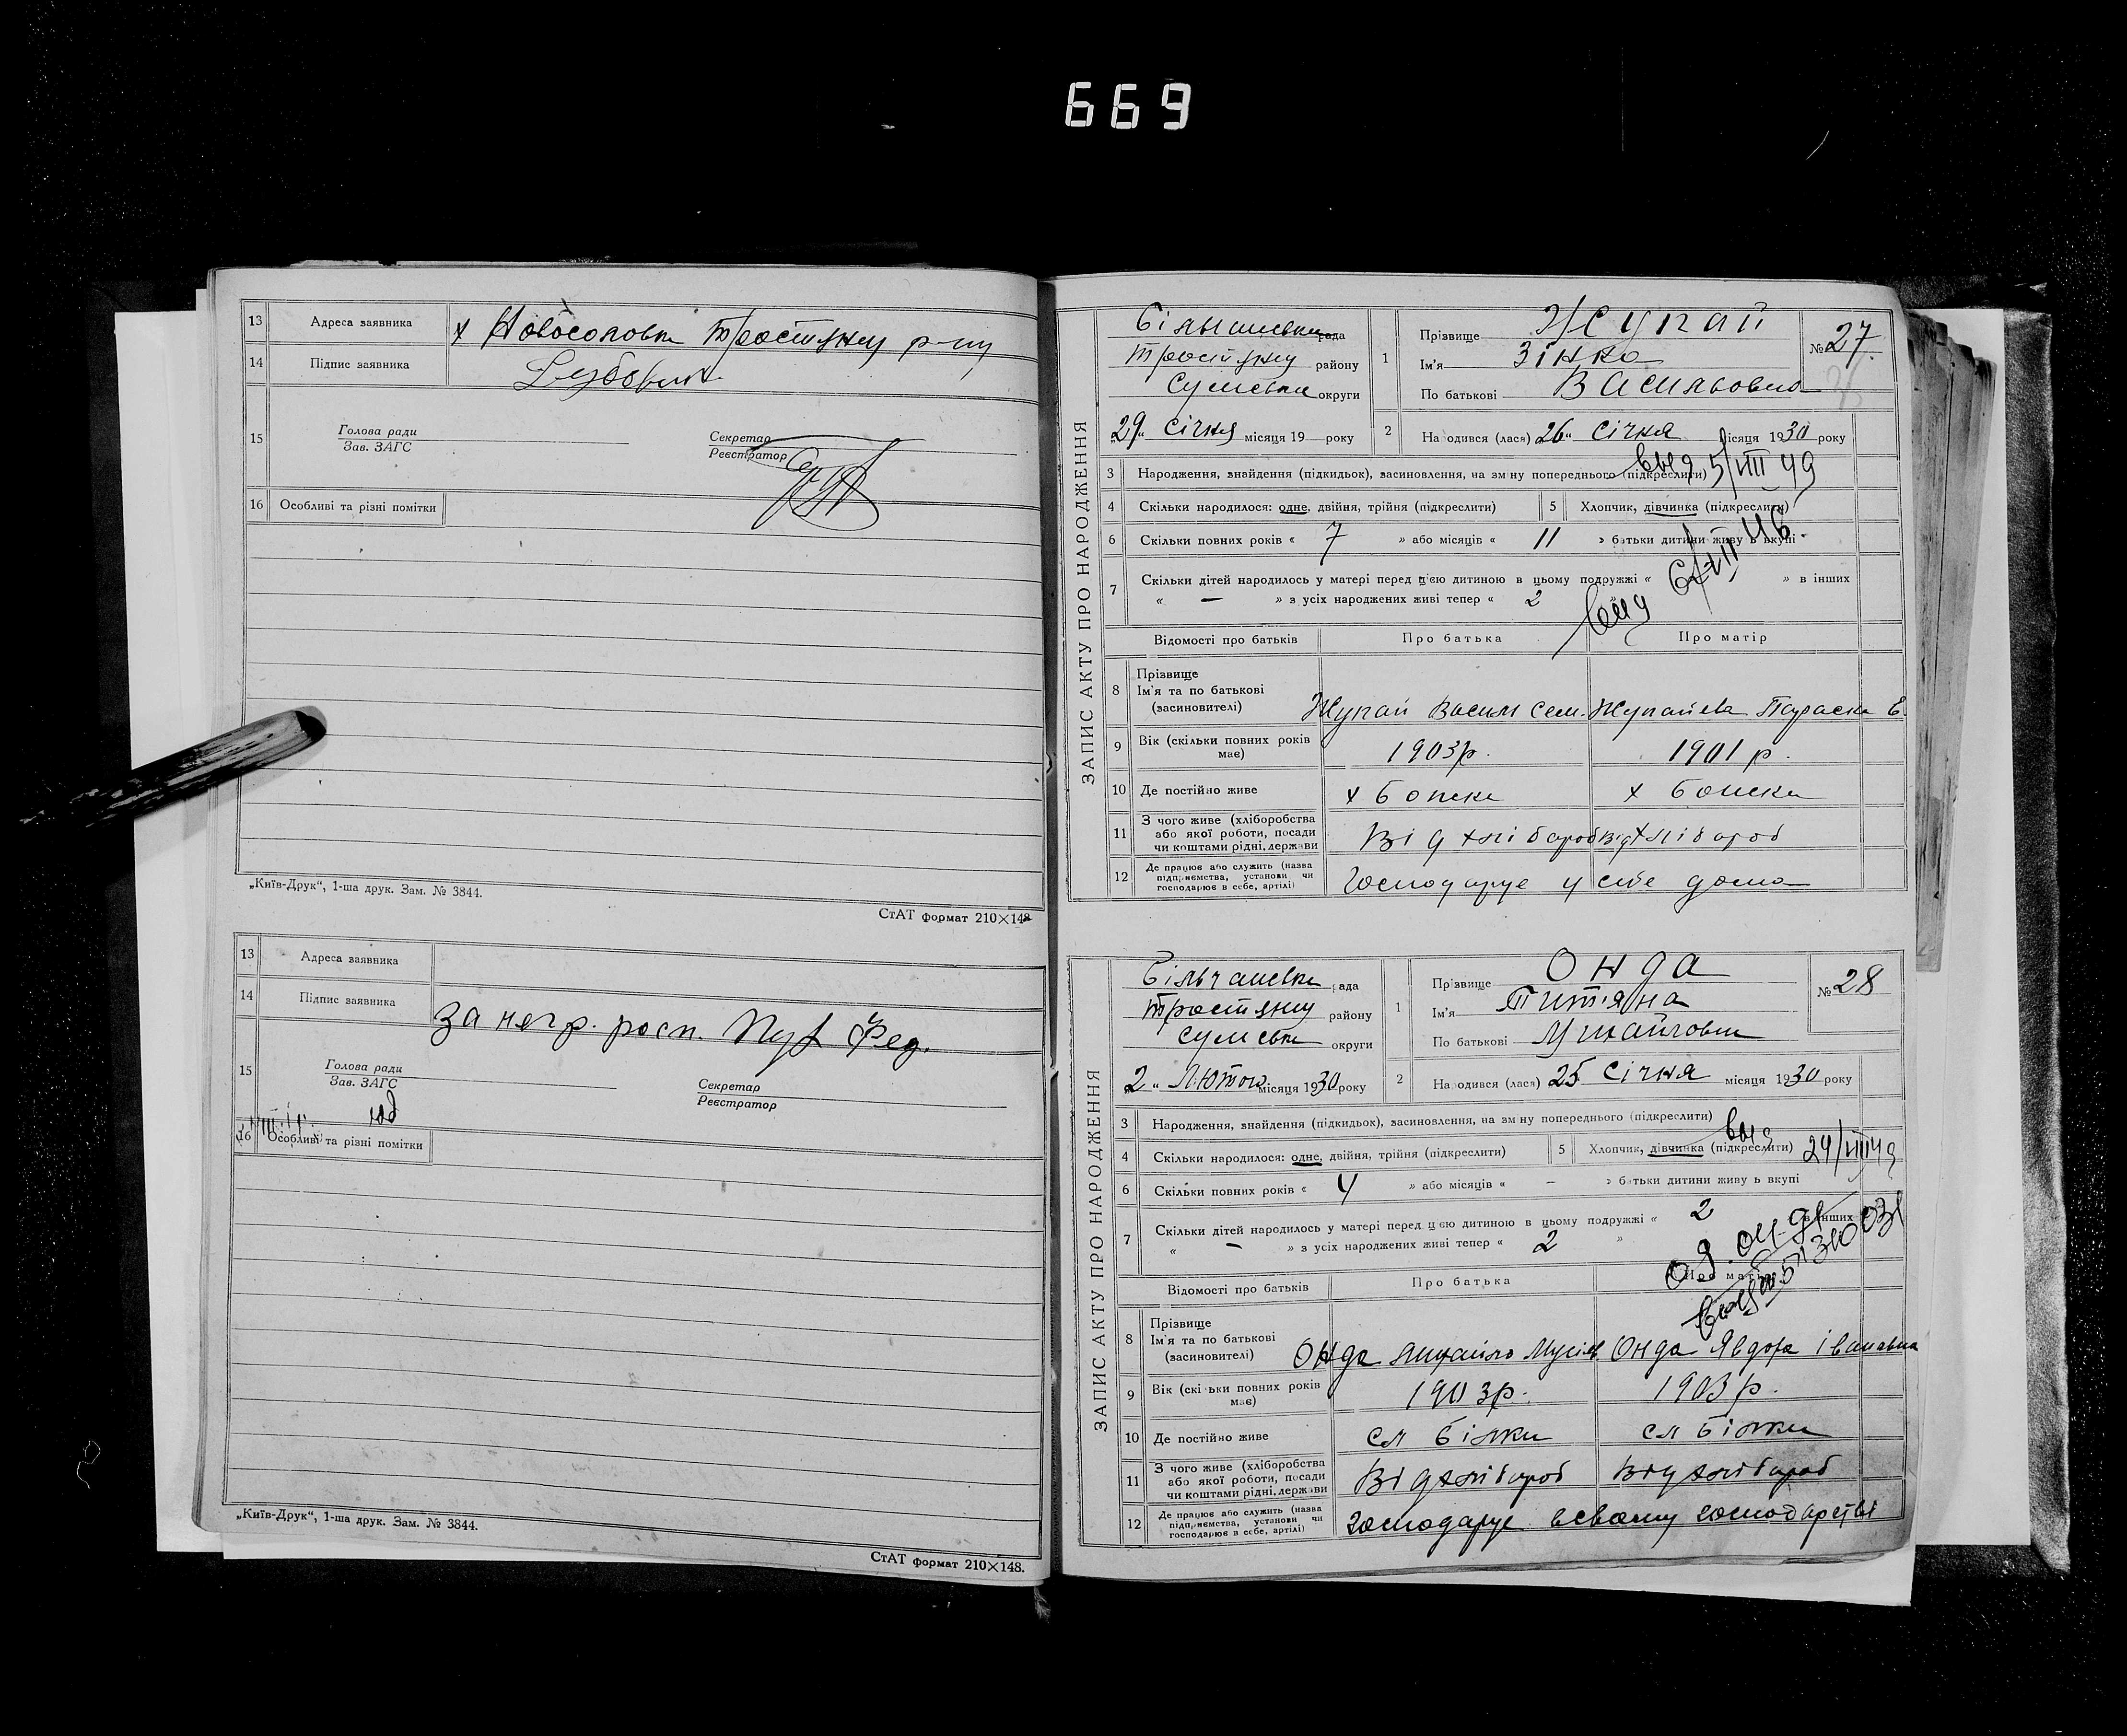 669
13 Адреса заявника х Новосоловка Тростянец р-ну
14 Підпис заявника
15 Голова ради
Зав. ЗАГС
Секретар
Реєстратор
16 Особливі та різні помітки
„Київ-Друк“, 1-ша друк. Зам. № 3844.
СтАТ формат 210×148
13 Адреса заявника
14 Підпис заявника
за негр. росп.
15 Голова ради
Зав. ЗАГС
Секретар
Реєстратор
16 Особливі та різні помітки
„Київ-Друк“, 1-ша друк. Зам. № 3844.
СтАТ формат 210×148.
ЗАПИС АКТУ ПРО НАРОДЖЕННЯ
рада
району
Сумська округи
„29“ січня місяця 19 року
1 Прізвище Жупай
Ім'я Зінка
По батькові Васильовна
№ 27
2 На одився (лася) 26“ січня місяця 1930 року
3 Народження, знайдення (підкидьок), засиновлення, на зм ну попереднього (підкреслити) 5/VIII 49
4 Скільки народилося: одне, двійня, трійня (підкреслити)
5 Хлопчик, дівчинка (підкреслити)
6 Скільки повних років « 7 » або місяців « 11 » батьки дитини живу ь вкупі
7 Скільки дітей народилось у матері перед цією дитиною в цьому подружжі « » в інших
« — » з усіх народжених живі тепер « 2 »
Відомості про батьків Про батька Про матір
8 Прізвище
Ім'я та по батькові
(засиновителі)
Жупай Васил Сем. Жупайева Параска Е.
9 Вік (скільки повних років
має)
1903р. 1901 р.
10 Де постійно живе
11 З чого живе (хліборобства
або якої роботи, посади
чи коштами рідні, держави
Від хлібороб Від хлібороб
12 Де працює або служить (назва
підприємства, установи чи
господарює в себе, артілі)
Господарує у себе дома
ЗАПИС АКТУ ПРО НАРОДЖЕННЯ
рада
району
Сумська округи
2 „ Лютого місяця 1930 року
1 Прізвище Онда
Ім'я Титяна
По батькові Михайловна
№ 28
2 На одився (лася) 25 січня місяця 1930 року
3 Народження, знайдення (підкидьок), засиновлення, на зм ну попереднього (підкреслити)
4 Скільки народилося: одне, двійня, трійня (підкреслити)
5 Хлопчик, дівчинка (підкреслити) 24/VIII 49
6 Скільки повних років « 4 » або місяців « – » батьки дитини живу ь вкупі
7 Скільки дітей народилось у матері перед цією дитиною в цьому подружжі « 2 » в інших
« — » з усіх народжених живі тепер « 2 »
Відомості про батьків Про батька Про матір
8 Прізвище
Ім'я та по батькові
(засиновителі)
Онда Михайло Мусіев. Онда Явдоха Івановна
9 Вік (скі ьки повних років
має)
1903р. 1903 р.
10 Де постійно живе сл Білки сл Білки
11 З чого живе (хліборобства
або якої роботи, посади
чи коштами рідні, держави
Від хлібороб Від хлібороб
12 Де працює або служить (назва
підприємства, установи чи
господарює в себе, артілі)
господарує в своєму господарстві